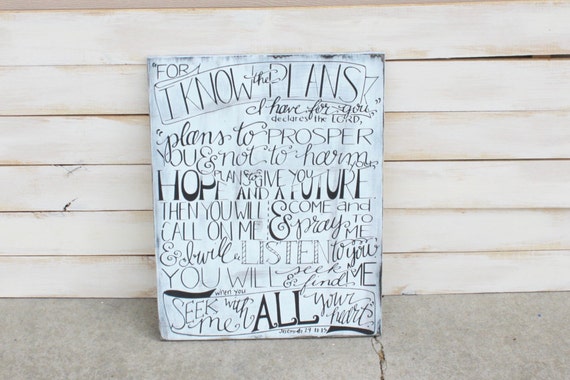 "FOR
I KNOW the PLANS
I have for you,"
declares the LORD,
"plans to PROSPER
YOU & not to harm YOU,
PLANS to GIVE YOU
HOPE AND A FUTURE
THEN YOU WILL & COME and
CALL ON ME & pray TO ME
& I will LISTEN to you
YOU WILL seek & find ME
when you
SEEK me with ALL your heart."
Jeremiah 29:11-13